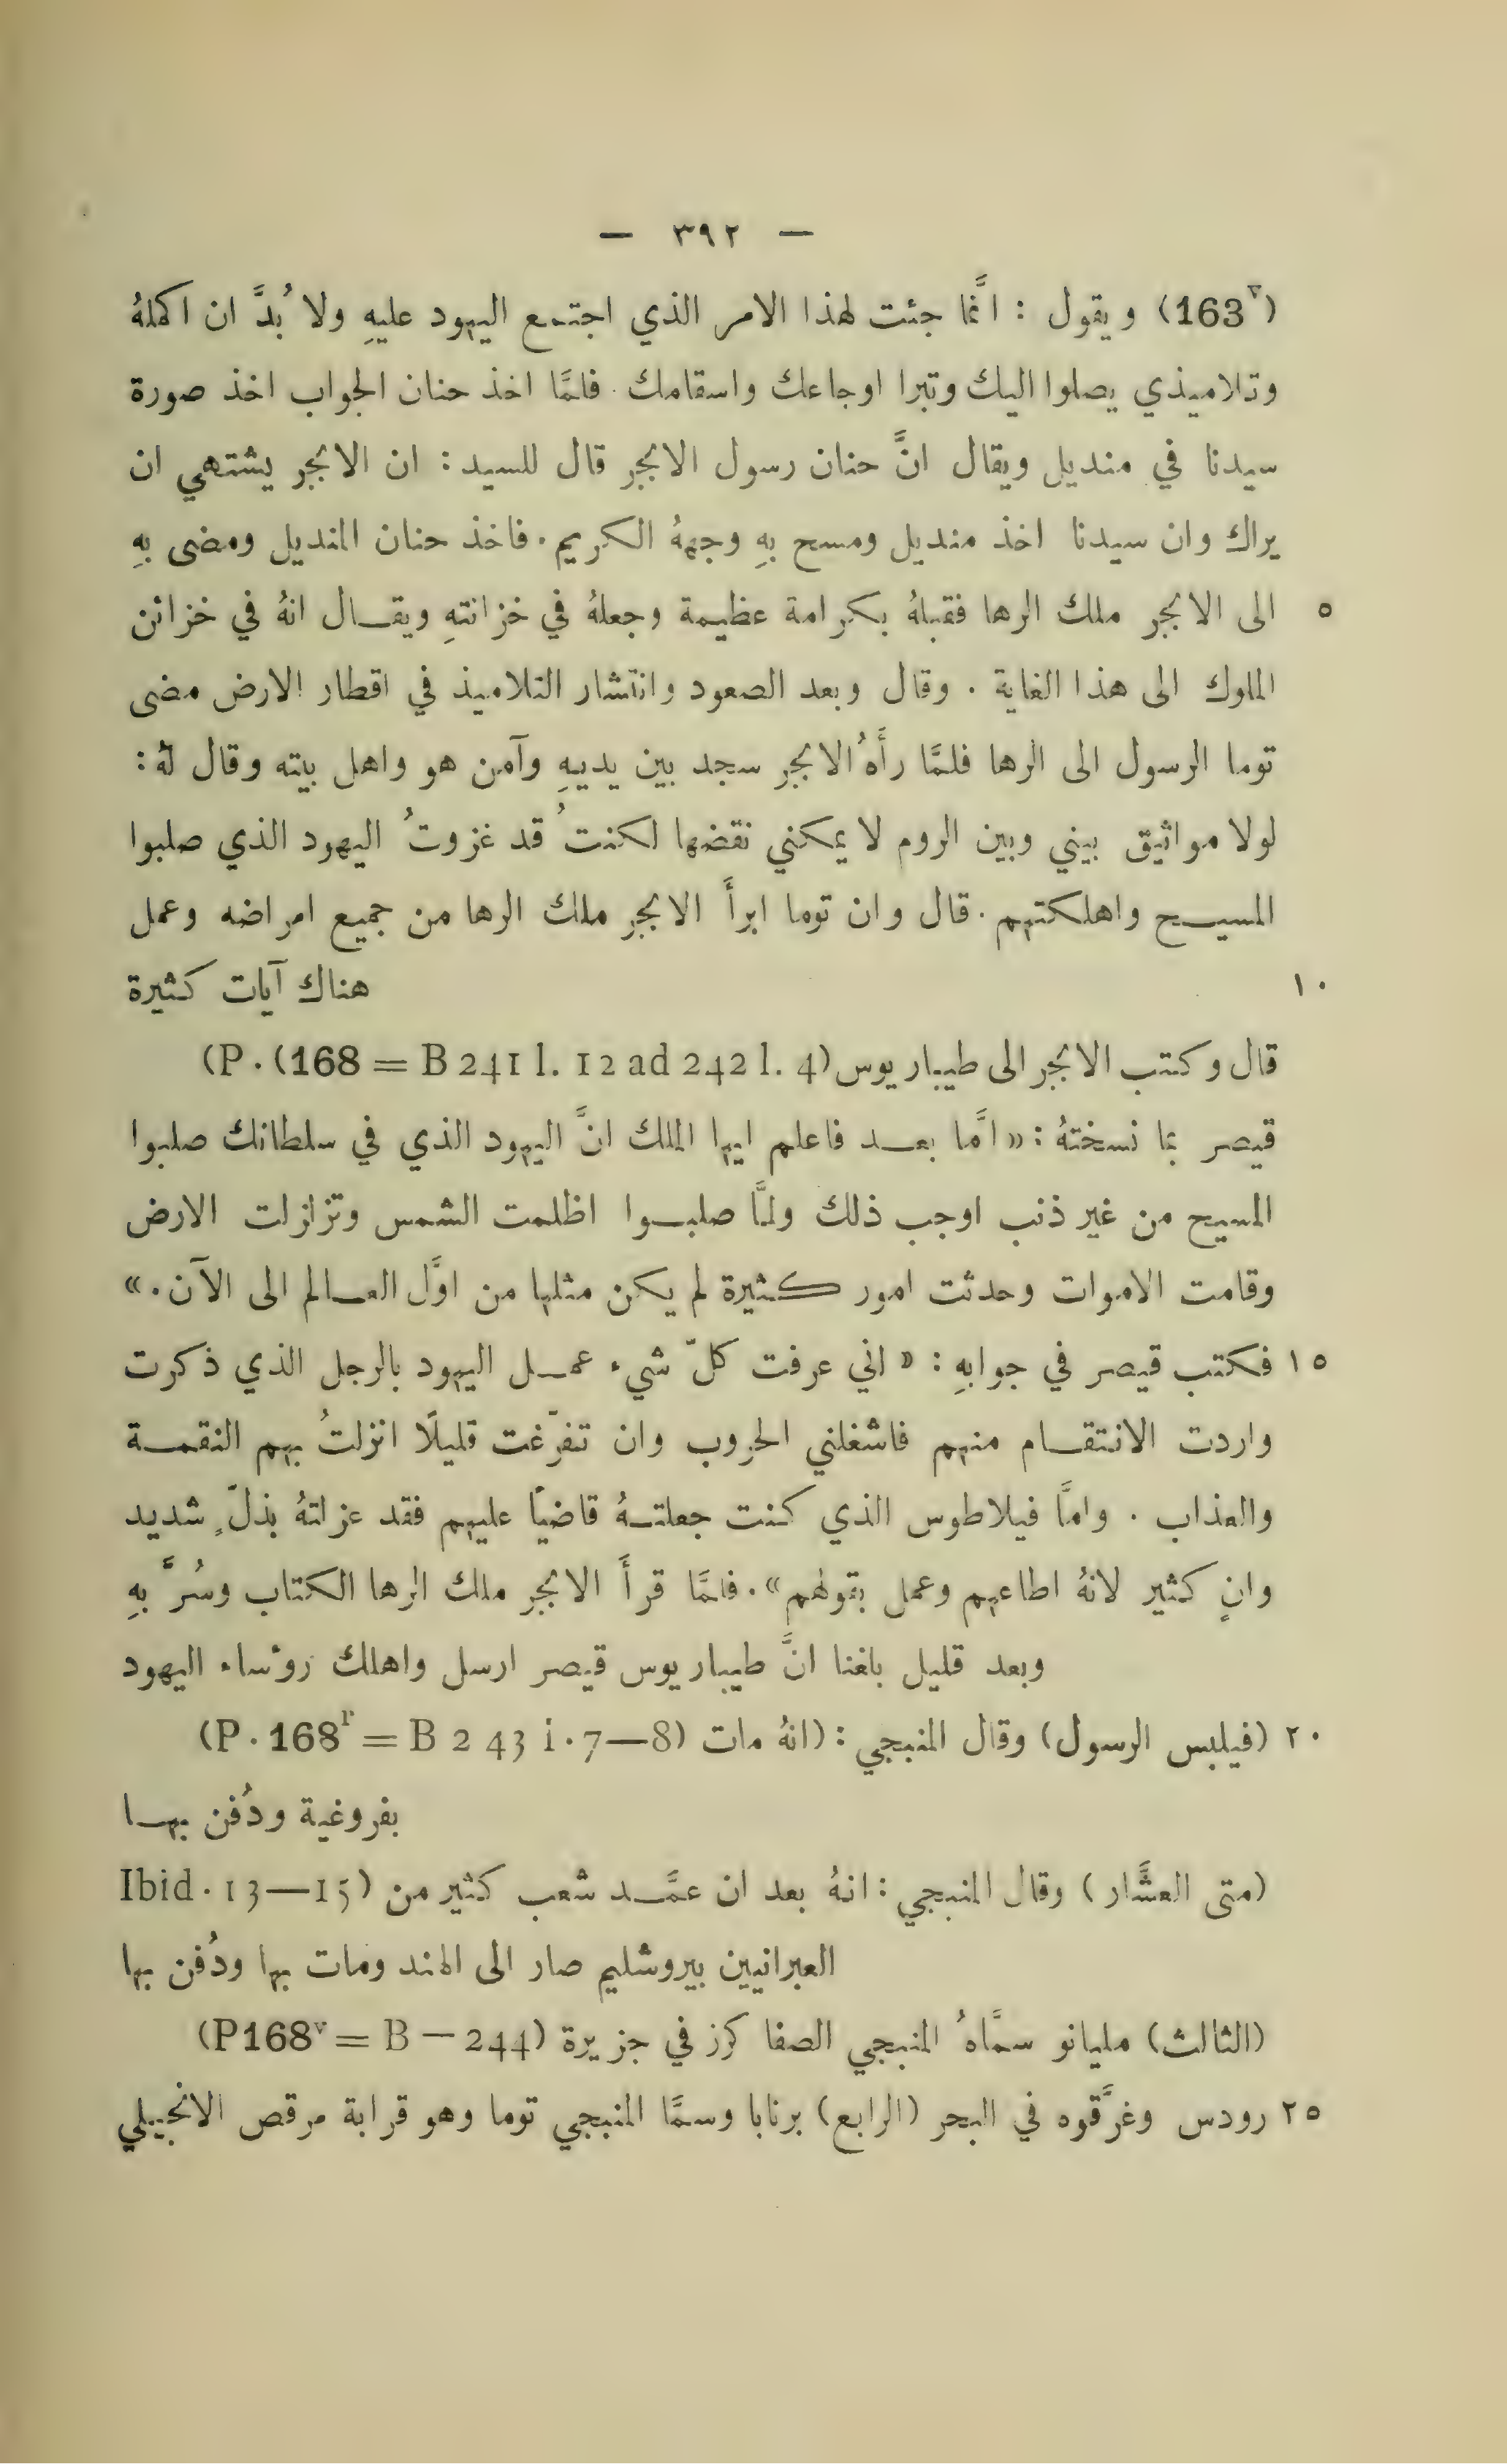 — ٣٩٢ —
(163v) ويقول : انَّما جئت لهذا الامر الذي اجتمع اليهود عليهِ ولا بُدَّ ان اكملهُ
وتلاميذي يصلوا اليك وتبرا اوجاعك واسقامك . فلمَّا اخذ حنان الجواب اخذ صورة
سيدنا في منديل ويقال انَّ حنان رسول الابجر قال للسيد : ان الابجر يشتهي ان
يراك وان سيدنا اخذ منديل ومسح بهِ وجههُ الكريم . فاخذ حنان المنديل ومضى بهِ
٥ الى الابجر ملك الرها فقبلهُ بكرامة عظيمة وجعلهُ في خزانتهِ ويقال انهُ في خزائن
الملوك الى هذا الغاية . وقال وبعد الصعود وانتشار التلاميذ في اقطار الارض مضى
توما الرسول الى الرها فلمَّا رأَهُ الابجر سجد بين يديهِ وآمن هو واهل بيته وقال لهُ :
لولا مواثيق بيني وبين الروم لا يمكنني نقضها لكنتُ قد غزوتُ اليهود الذي صلبوا
المسيح واهلكتهم . قال وان توما ابرأَ الابجر ملك الرها من جميع امراضه وعمل
١٠ هناك آيات كثيرة
قال وكتب الابجر الى طيباريوس (P. (168 = B 241 l. 12 ad 242 l. 4)
قيصر بما نسختهُ : « امَّا بعد فاعلم ايها الملك انَّ اليهود الذي في سلطانك صلبوا
المسيح من غير ذنب اوجب ذلك ولمَّا صلبوا اظلمت الشمس وتزلزلت الارض
وقامت الاموات وحدثت امور كثيرة لم يكن مثلها من اوَّل العالم الى الآن . »
١٥ فكتب قيصر في جوابهِ : « اني عرفت كلّ شيء عمل اليهود بالرجل الذي ذكرت
واردت الانتقام منهم فاشغلني الحروب وان تفرّغت قليلًا انزلتُ بهم النقمة
والعذاب . وامَّا فيلاطوس الذي كنت جعلتهُ قاضيًا عليهم فقد عزلتهُ بذلّ ٍ شديد
وانٍ كثير لانهُ اطاعهم وعمل بقولهم » . فلمَّا قرأَ الابجر ملك الرها الكتاب وسُرَّ بهِ
وبعد قليل بلغنا انَّ طيباريوس قيصر ارسل واهلك روْساء اليهود
٢٠ (فيلبس الرسول) وقال المنبجي : (انهُ مات (P. 168r = B 2 43 i. 7—8)
بفروغية ودُفن بها
(متى العشَّار) وقال المنبجي : انهُ بعد ان عمَّد شعب كثير من (Ibid. 13—15
العبرانيين بيروشليم صار الى الهند ومات بها ودُفن بها
(الثالث) مليانو سمَّاهُ المنبجي الصفا كرز في جزيرة (P168v = B — 244)
٢٥ رودس وغرَّقوه في البحر (الرابع) برنابا وسمَّا المنبجي توما وهو قرابة مرقص الانجيلي